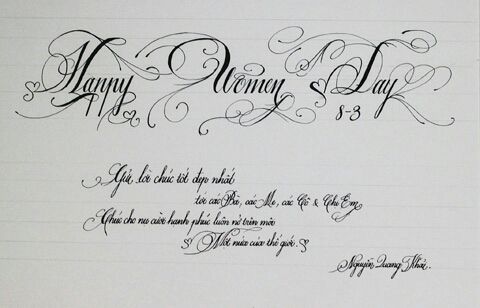 Happy Women Day
8-3
Gửi lời chúc tốt đẹp nhất
tới các Bà, các Mẹ, các Cô & Chị Em
Chúc cho nụ cười hạnh phúc luôn nở trên môi
Một nửa của thế giới.
Nguyễn Quang Khải.